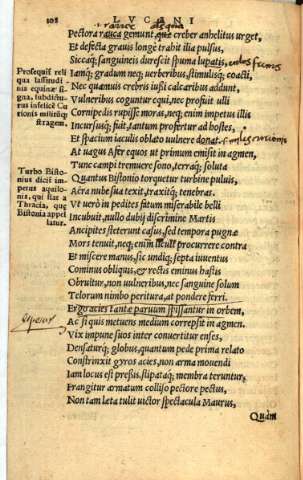 108 LVCANI
Pectora rauca gemunt, quæ creber anhelitus urget,
Et defecta grauis longè trahit ilia pulsus,
Siccaq; sanguineis durescit spuma lupatis,
Iamq; gradum neq; uerberibus, stimulisq; coacti,
Nec quamuis crebris iussi calcaribus addunt,
Vulneribus coguntur equi, nec profuit ulli
Cornipedis rupisse moras, neq; enim impetus illis
Incursusq; fuit, tantum profertur ad hostes,
Et spacium iaculis oblato uulnere donat.
At uagus Afer equos ut primum emisit in agmen,
Tunc campi tremuere sono, terraq; soluta
Quantus Bistonio torquetur turbine puluis,
Aëra nube sua texit, traxitq; tenebras.
Vt uerò in pedites fatum miserabile belli
Incubuit, nullo dubij discrimine Martis
Ancipites steterunt casus, sed tempora pugnæ
Mors tenuit, neq; enim licuit procurrere contra
Et miscere manus, sic undiq; septa iuuentus
Cominus obliquis, & rectis eminus hastis
Obruitur, non uulneribus, nec sanguine solum
Telorum nimbo peritura, at pondere ferri.
Ergo acies tantæ paruum spissantur in orbem,
Ac si quis metuens medium correpsit in agmen.
Vix impune suos inter conuertitur enses,
Densaturq; globus, quantum pede prima relato
Constrinxit gyros acies, non arma mouendi
Iam locus est pressis, stipataq; membra teruntur,
Frangitur armatum colliso pectore pectus,
Non tam læta tulit uictor spectacula Maurus,
Quàm
Prosequit̃ reli
qua lassitudi
nis equinæ si
gna, subdictu
rus infelicẽ Cu
rionis militũq̃
stragem.
Turbo Bisto-
nius dicit̃ im
petus aquilo-
nis, qui flat a
Thracia, quæ
Bistonia appel
latur.